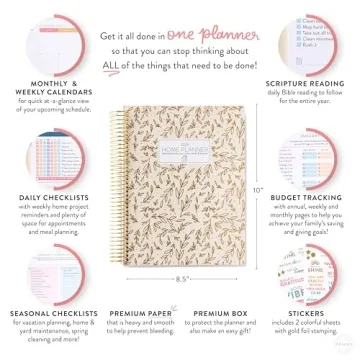 Get it all done in one planner
so that you can stop thinking about
ALL of the things that need to be done!
MONTHLY &
WEEKLY CALENDARS
for quick at-a-glance view
of your upcoming schedule.
SCRIPTURE READING
daily Bible reading to follow
for the entire year.
HOME PLANNER
DAILY CHECKLISTS
with weekly home project
reminders and plenty of
space for appointments
and meal planning.
10"
BUDGET TRACKING
with annual, weekly and
monthly pages to help you
achieve your family's saving
and giving goals!
8.5"
SEASONAL CHECKLISTS
for vacation planning, home &
yard maintenance, spring
cleaning and more!
PREMIUM PAPER
that is heavy and smooth
to help prevent bleeding.
PREMIUM BOX
to protect the planner and
also make an easy gift!
STICKERS
includes 2 colorful sheets
with gold foil stamping.